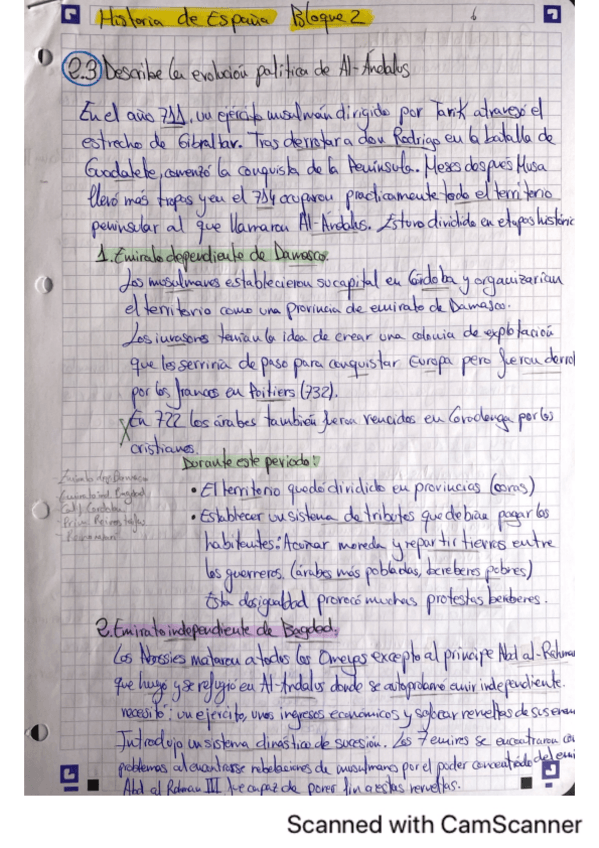 Historia de España Bloque 2
2.3 Describe la evolución política de Al-Ándalus
En el año 711, un ejército musulmán dirigido por Tarik atravesó el
estrecho de Gibraltar. Tras derrotar a don Rodrigo en la batalla de
Guadalete, comenzó la conquista de la Península. Meses después Musa
llevó más tropas y en el 714 ocuparon practicamente todo el territorio
peninsular al que llamaron Al-Ándalus. Estuvo dividido en etapas históric
1. Emirato dependiente de Damasco.
Los musulmanes establecieron su capital en Córdoba y organizarían
el territorio como una provincia de emirato de Damasco.
Los invasores tenían la idea de crear una colonia de explotación
que les serviría de paso para conquistar Europa pero fueron derro
por los francos en Poitiers (732).
En 722 los árabes también fueron vencidos en Covadonga por los
cristianos.
Durante este periodo:
• El territorio quedó dividido en provincias (coras)
• Establecer un sistema de tributos que debían pagar los
habitantes. Acuñar moneda y repartir tierras entre
los guerreros. (árabes más pobladas, bereberes pobres)
Esta desigualdad provocó muchas protestas bereberes.
2. Emirato independiente de Bagdad.
Los mataron a todos los Omeyas excepto al príncipe Abd al-Rahman
que huyó y se refugió en Al-Ándalus donde se autoproclamó emir independiente.
necesitó: un ejército, unos ingresos económicos y sofocar revueltas de sus enem
Introdujo un sistema dinástico de sucesión. Los 7 emires se encontraron con
problemas al encontrarse rebelaciones de musulmanes por el poder concentrado del emi
Abd al Rahman III fue capaz de poner fin a estas revueltas.
Scanned with CamScanner